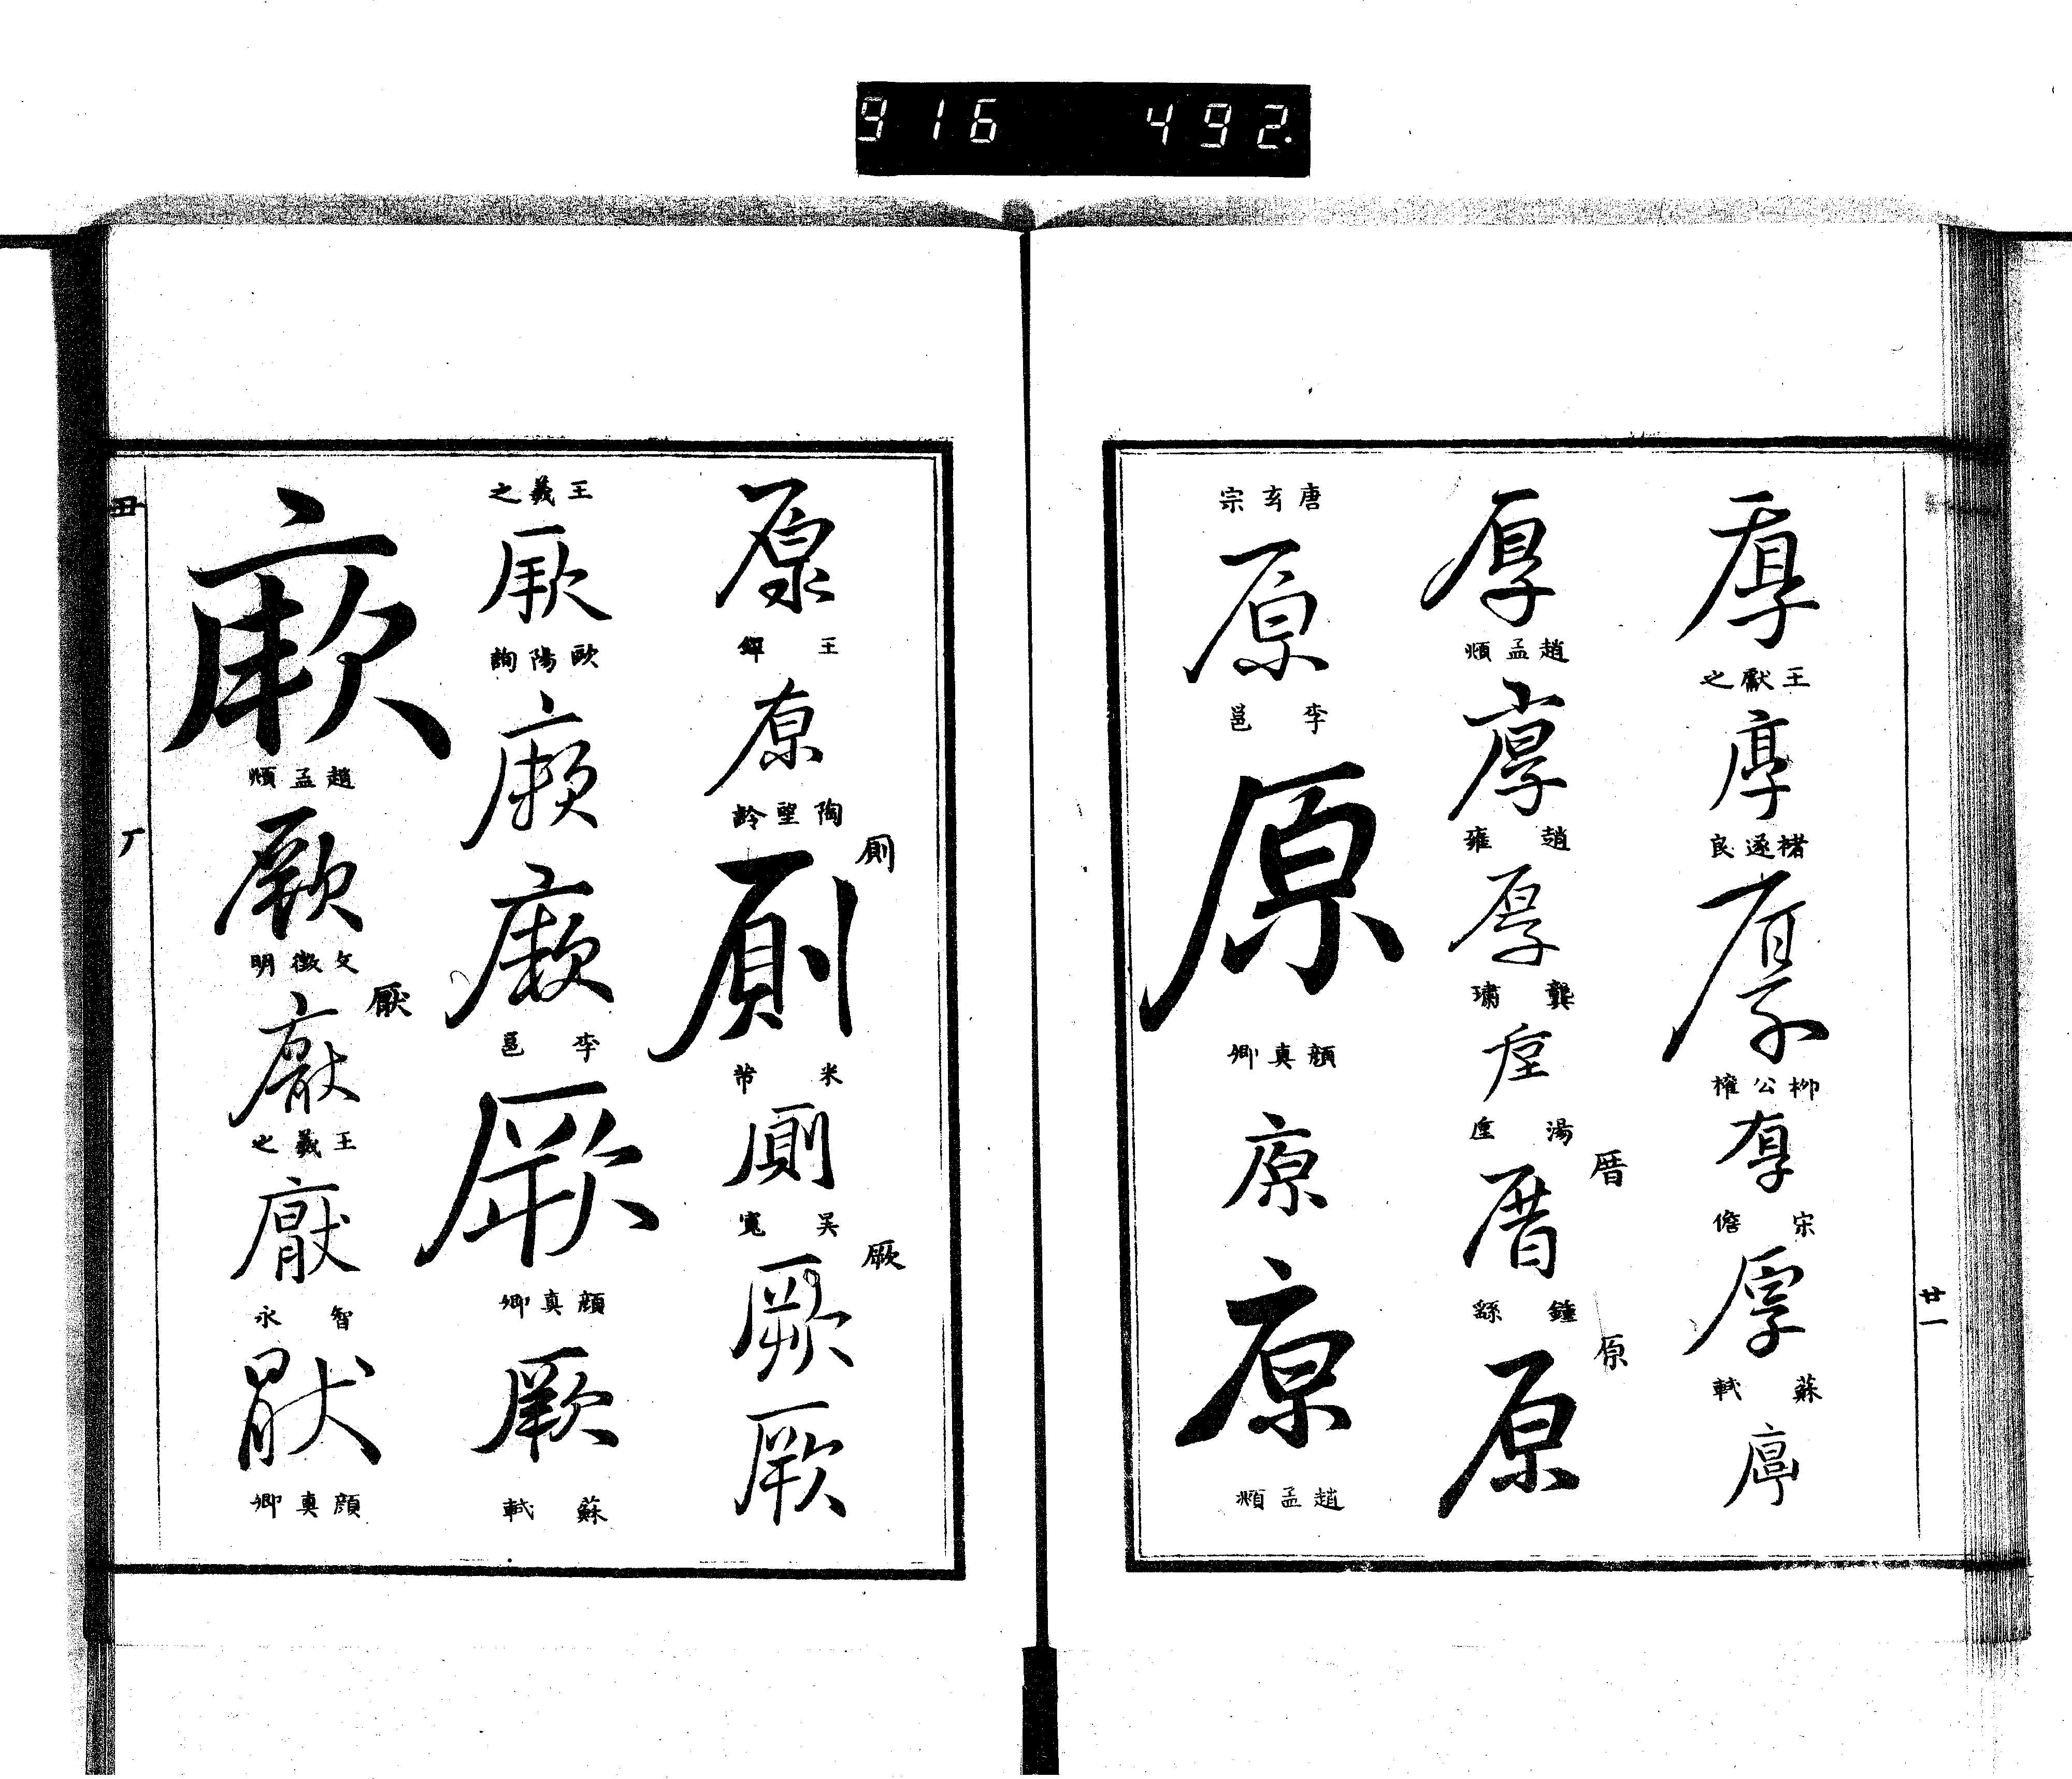 916 492.
厚
王獻之
厚
褚遂良
厚
柳公權
厚
宋儋
厚
蘇軾
厚
厚
趙孟頫
厚
趙雍
厚
龔璛
厚
湯垕
厝
厝
鍾繇
原
原
唐玄宗
原
李邕
原
顏真卿
原
原
趙孟頫
廿一
原
王鐸
原
陶望齡
厠
厠
米芾
厠
吳寬
厥
厥
厥
王羲之
厥
歐陽詢
厥
厥
李邕
厥
顏真卿
厥
蘇軾
厥
趙孟頫
厥
文徵明
厭
厭
王羲之
厭
智永
厭
顏真卿
丑
厂